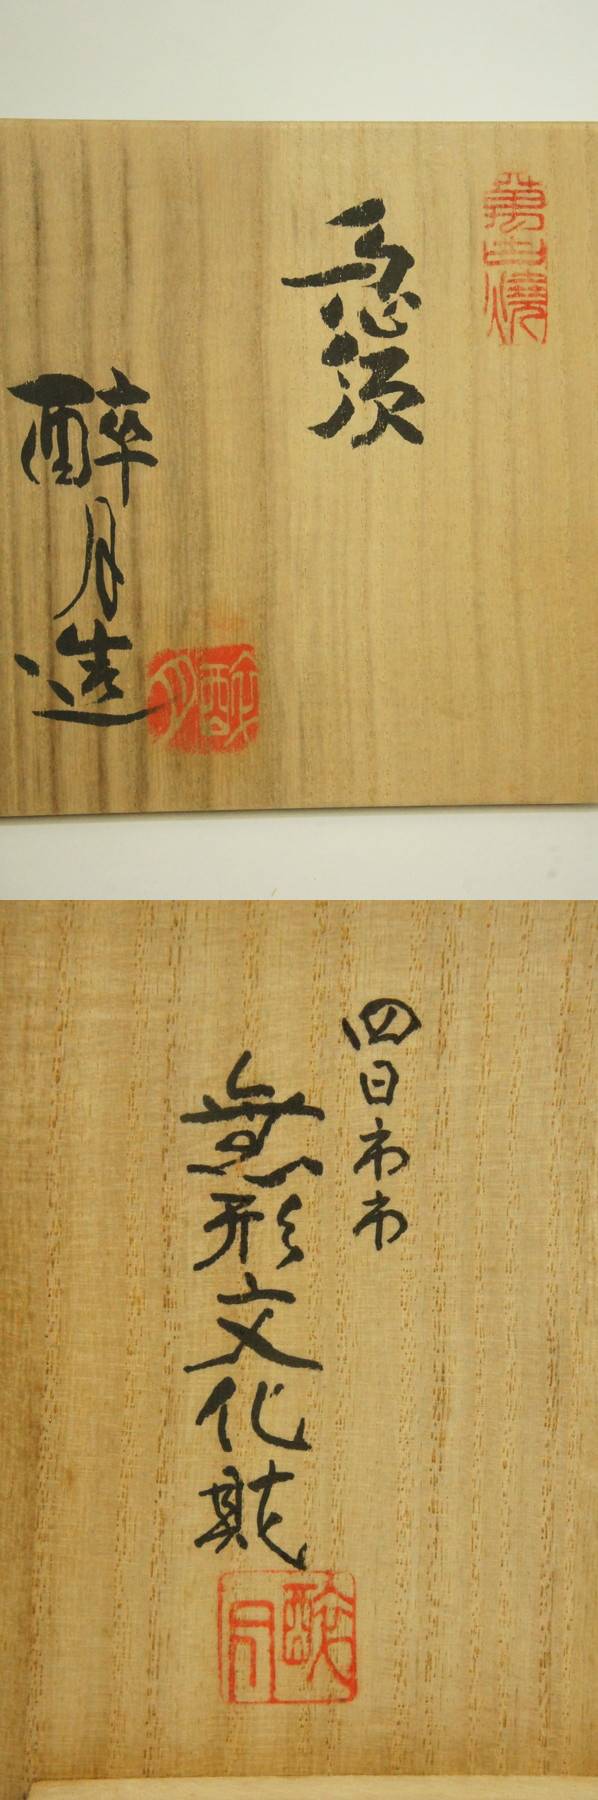 萬古燒
急須
醉月造
醉月
四日市市
無形文化財
醉月